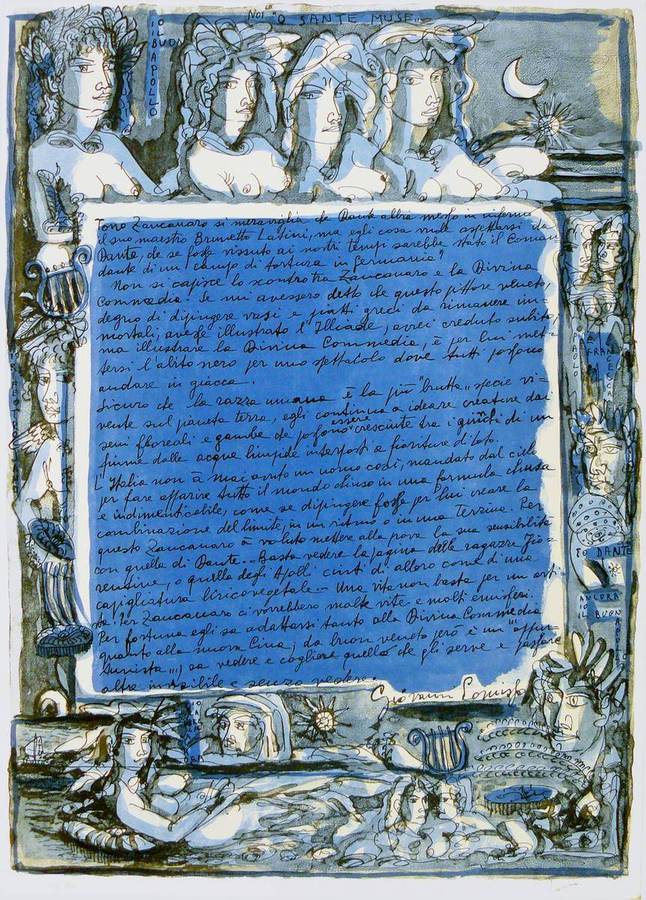 NOI "O SANTE MUSE...
IO
IL BUON
APOLLO
Tono Zancanaro si meraviglia che Dante abbia messo in inferno
il suo maestro Brunetto Latini, ma egli cosa vuole aspettarsi da
Dante, che se fosse vissuto ai nostri tempi sarebbe stato il Coman
dante di un campo di tortura in Germania?
Non si capisce lo scontro tra Zancanaro e la Divina
Commedia. Se mi avessero detto che questo pittore veneto,
degno di dipingere vasi e piatti greci da rimanere im-
mortali, avesse illustrato l'Illiade, avrei creduto subito,
ma illustrare la Divina Commedia, è per lui met-
tersi l'abito nero per uno spettacolo dove tutti possono
andare in giacca.
Sicuro che la razza umana è la più "brutta" specie vi-
vente sul pianeta terra, egli continua a ideare creature dai
seni floreali e gambe che possono essere cresciute tra i giunchi di un
fiume dalle acque limpide interposti a fioriture di loto.
L'Italia non à mai avuto un uomo così, mandato dal cielo
per fare apparire tutto il mondo chiuso in una formula chiusa
e indimenticabile, come se dipingere fosse per lui creare la
combinazione del limite, in un ritmo o in una Terzina. Per
questo Zancanaro à voluto mettere alla prova la sua sensibilità
con quella di Dante... Basta vedere la pagina delle ragazze Fio-
rentine, o quella degli Apolli cinti di alloro come di una
capigliatura liricovegetale... Una vita non basta per un arti-
sta. Per Zancanaro ci vorrebbero molte vite e molti emisferi.
Per fortuna egli sa adattarsi tanto alla Divina Commedia
quanto alla nuova Cina, da buon veneto però è un "oppor-
tunista"..., sa vedere e cogliere quello che gli serve e passare
oltre invisibile e senza vedere.
PAOLO
E
FRANCESCA
IO DANTE
ANCORA
IO
IL BUON
APOLLO